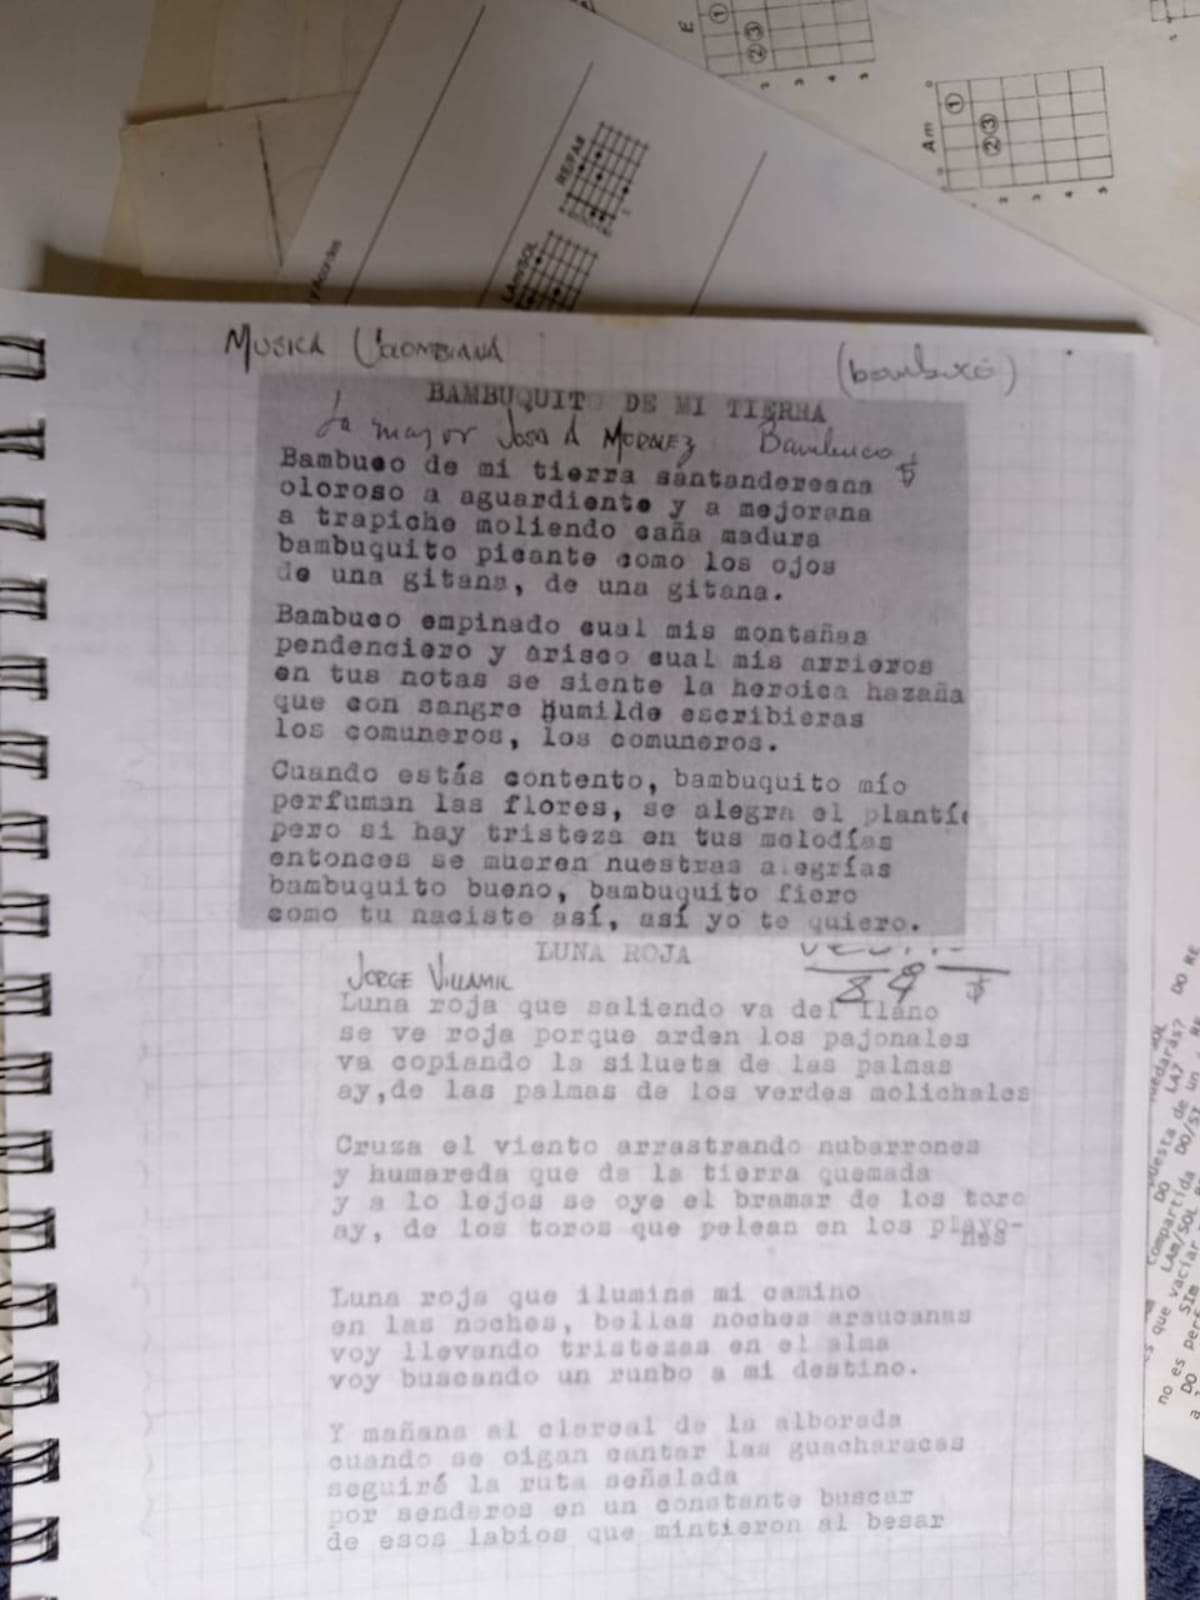 E
①
②③
2
3
4
5
Am
①
②③
2
3
4
5
RE/FA#
LAm/SOL
MUSICA COLOMBIANA
(bambuco)
BAMBUQUIT DE MI TIERRA
La mayor José A MORALEZ Bambuco
Bambuco de mi tierra santandereana
oloroso a aguardiente y a mejorana
a trapiche moliendo caña madura
bambuquito picante como los ojos
de una gitana, de una gitana.
Bambuco empinado cual mis montañas
pendenciero y arisco cual mis arrieros
en tus notas se siente la heroica hazaña
que con sangre humilde escribieras
los comuneros, los comuneros.
Cuando estás contento, bambuquito mío
perfuman las flores, se alegra el plantí
pero si hay tristeza en tus melodías
entonces se mueren nuestras alegrías
bambuquito bueno, bambuquito fiero
como tu naciste así, así yo te quiero.
LUNA ROJA
89
JORGE VILLAMIL
Luna roja que saliendo va del llano
se ve roja porque arden los pajonales
va copiando la silueta de las palmas
ay,de las palmas de los verdes molichales
Cruza el viento arrastrando nubarrones
y humareda que da la tierra quemada
y a lo lejos se oye el bramar de los toro
ay, de los toros que pelean en los playo-
nes
Luna roja que ilumina mi camino
en las noches, bellas noches araucanas
voy llevando tristezas en el alma
voy buscando un runbo a mi destino.
Y mañana al clareal de la alborada
cuando se oigan cantar las guacharacas
seguiré la ruta señalada
por senderos en un constante buscar
de esos labios que mintieron al besar
DO RE
SOL
uedarás?
LA7
uesta de un
DO DO/SI
compartida
LAm/SOL
s que vaciar
SIm
no es per
DO
a